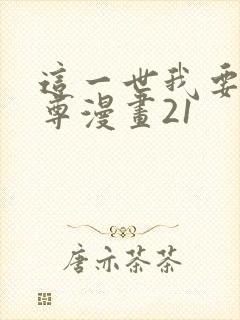 這一世我要
尊漫畫21
唐亦茶茶